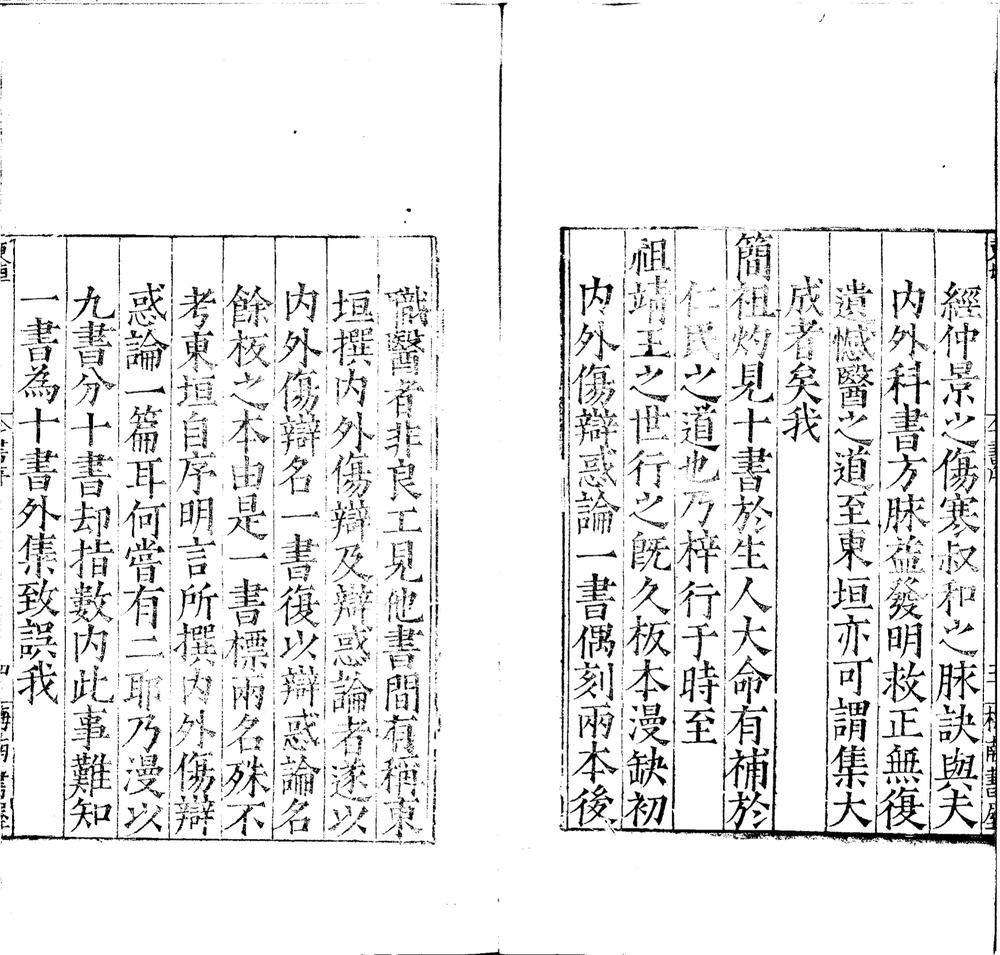 經仲景之傷寒叔和之脉訣與夫
内外科書方脉益發明救正無復
遺憾醫之道至東垣亦可謂集大
成者矣我
簡祖灼見十書於生人大命有補於
仁民之道也乃梓行于時至
祖靖王之世行之旣久板本漫缺初
内外傷辯惑論一書偶刻兩本後
職醫者非良工見他書間有稱東
垣撰内外傷辯及辯惑論者遂以
内外傷辯名一書復以辯惑論名
餘板之本由是一書標兩名殊不
考東垣自序明言所撰内外傷辯
惑論一篇耳何嘗有二耶乃漫以
九書分十書却指數内此事難知
一書為十書外集致誤我